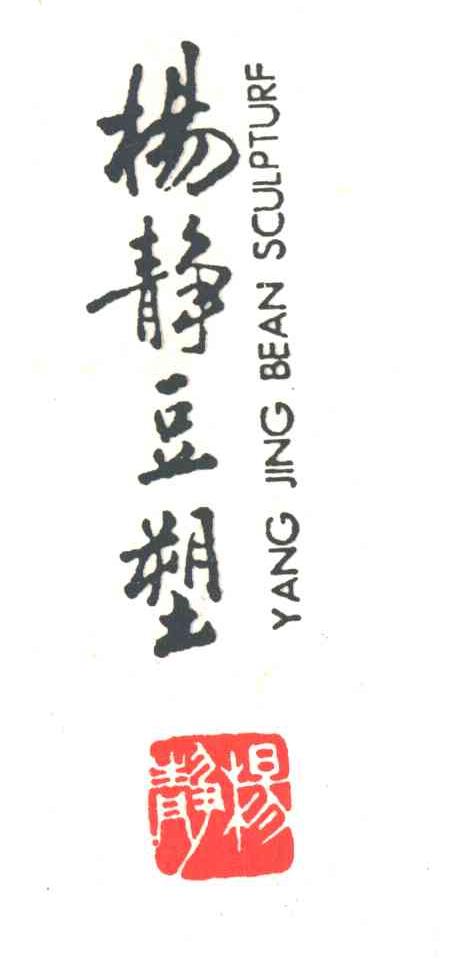 楊靜豆塑
YANG JING BEAN SCULPTURF
楊靜